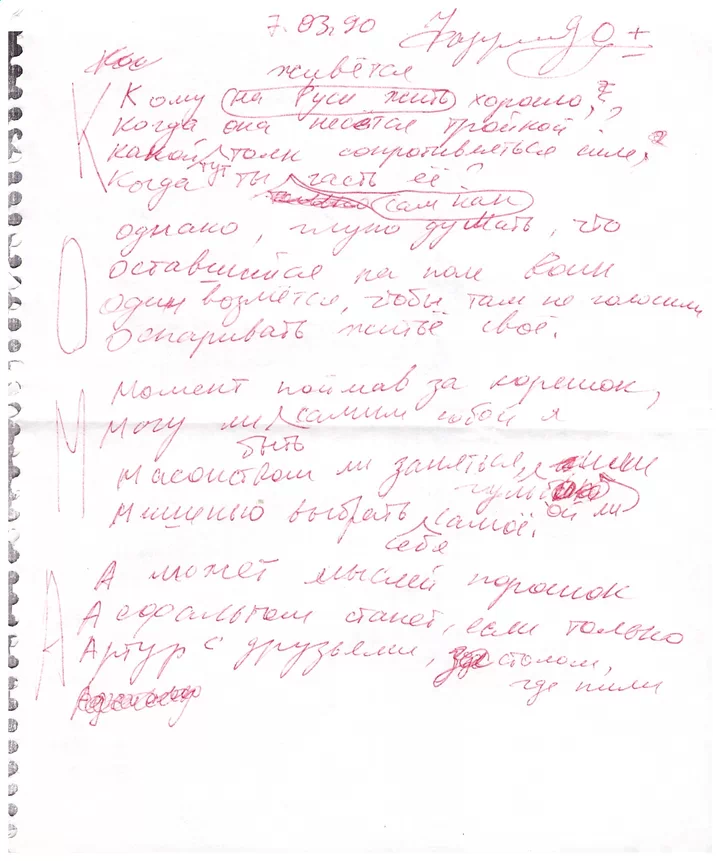 7.03.90
живётся
К Кому на Руси жить хорошо, ?
Когда она несётся тройкой?
Какой толк сопротивляться силе,
Когда тут ты часть её?
сам как
однако, глупо думать, что
О оставшийся на поле воин
один возмётся, чтобы там не голосили
Оспаривать житьё своё.
Момент поймав за корешок,
М Могу ли самим собой я
быть
Масонством ли заняться,
Мишенью выбрать самоё. ой ли
себя
А может мыслей порошок
А Асфальтом станет, если только
Артур с друзьями, за столом,
где пили